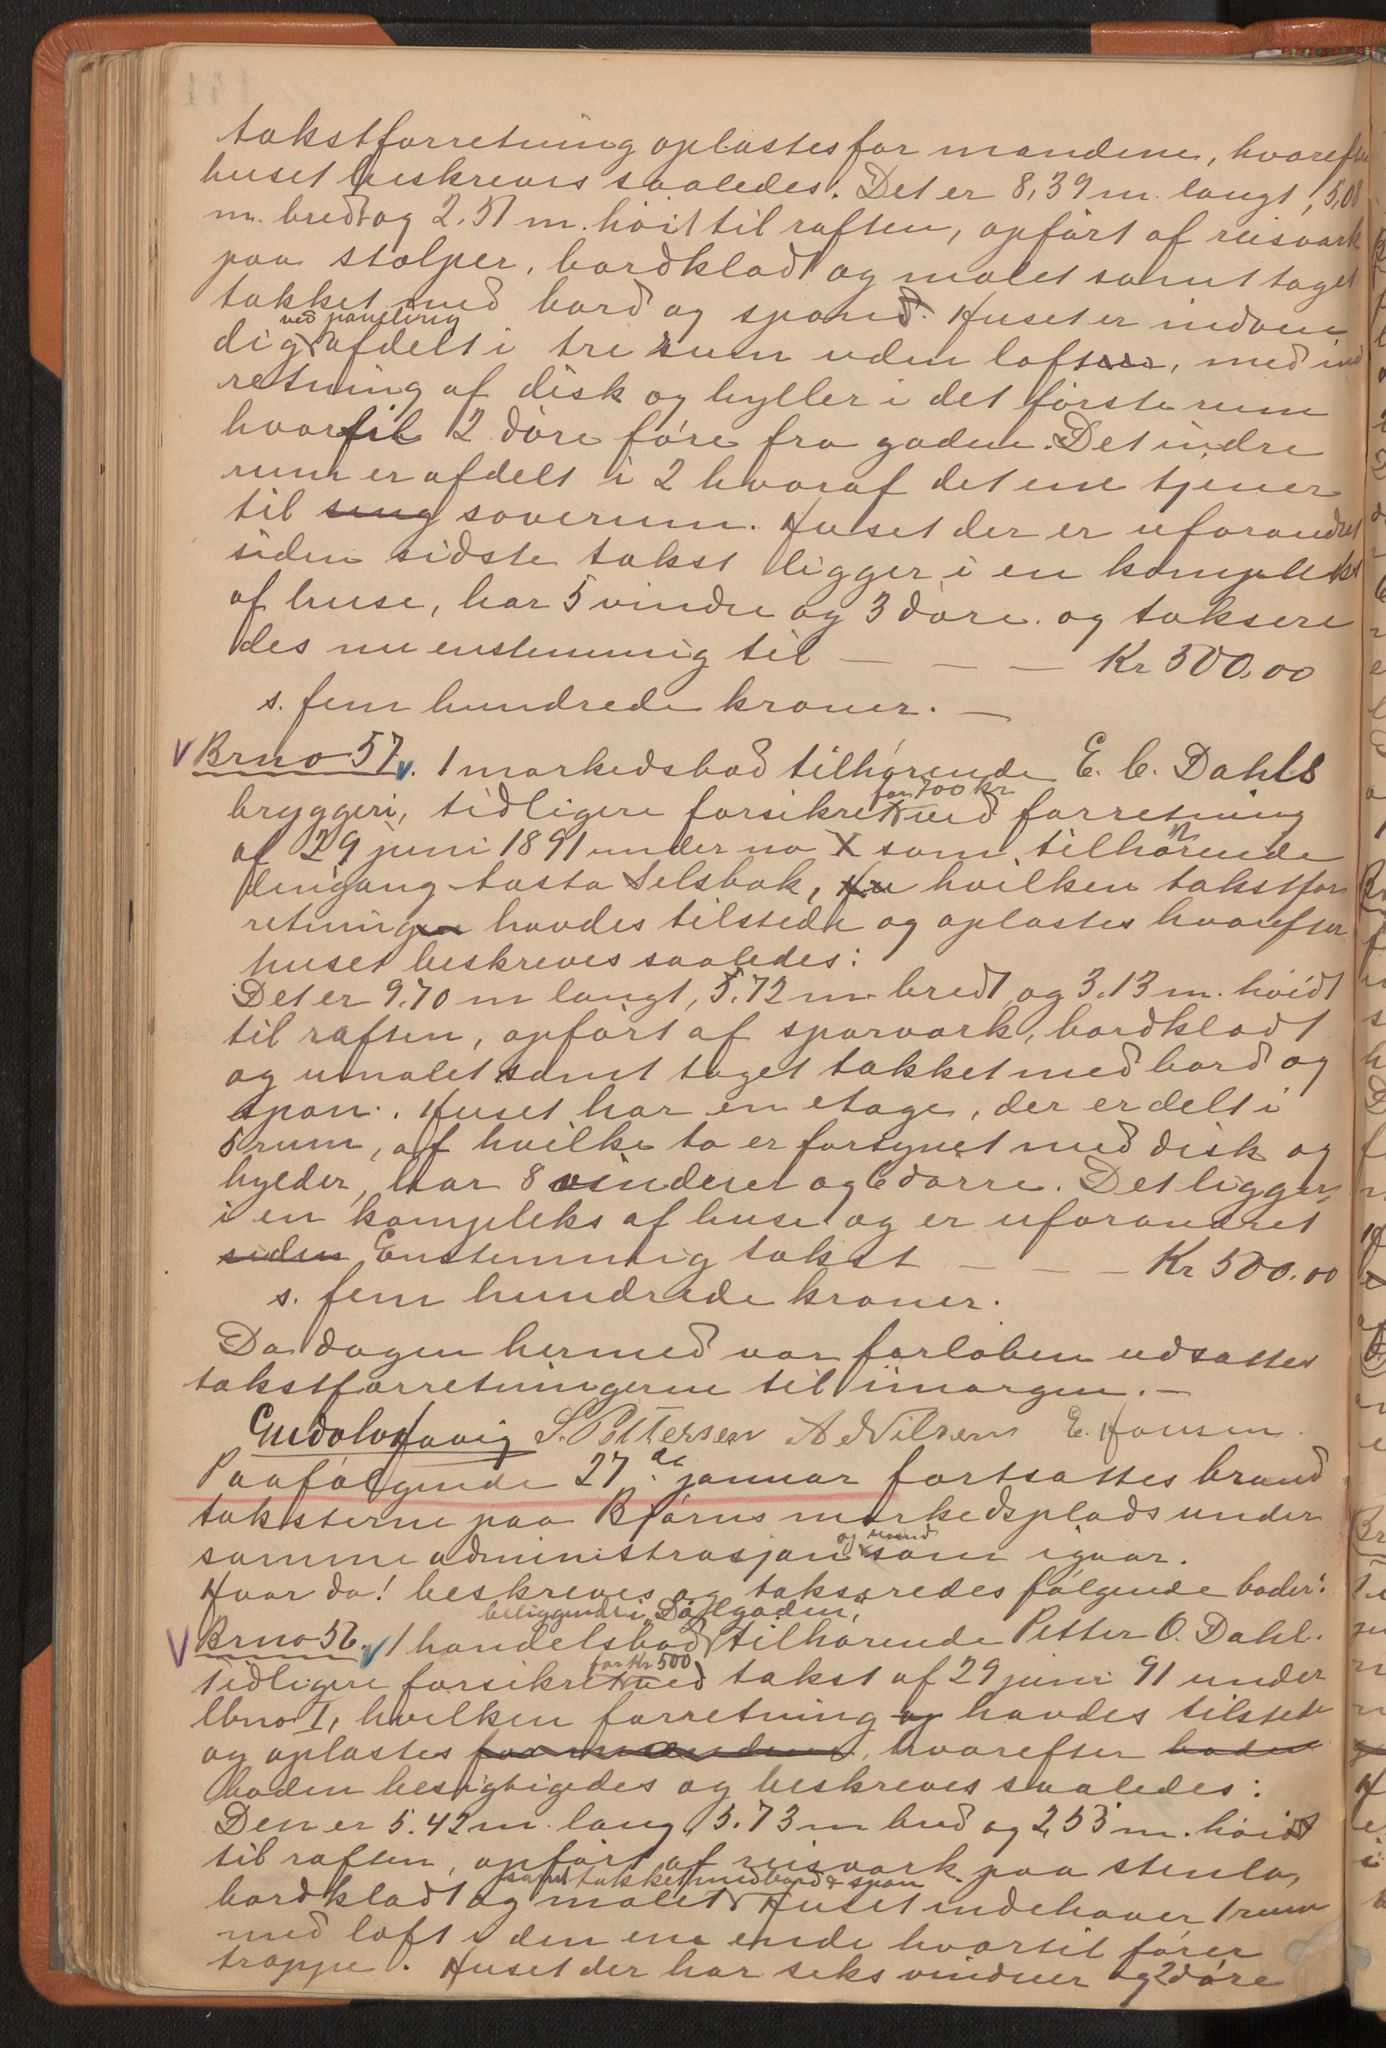 takstforretning oplæstes for mændene, hvorefter
huset beskreves saaledes. Det er 8,39 m. langt, 5,08
m. bredt og 2.51 m. höit til raften, opfört af reisværk
paa stolper, bordklædt og malet samt taget
tækket med bord og spond. Huset er indven
dig ved paneling afdelt i tre rum uden loft, med ind
retning af disk og hyller i det förste rum
hvortil 2 döre före fra gaden. Det indre
rum er afdelt i 2 hvoraf det ene tjener
til seng soverum. Huset der er uforandret
siden sidste takst ligger i en kompleks
af huse, har 5 vindu og 3 döre. og taksere
des nu enstemmig til — — — Kr 500.00
s. fem hundrede kroner. —
Brno 57. 1 markedsbod tilhörende E. C. Dahls
bryggeri, tidligere forsikret for 700 kr ved forretning
af 29 juni 1891 under no X som tilhörende
dengang tösta Selsbak, hvilken takstfor
retning havdes tilstede og oplæstes hvorefter
huset beskreves saaledes:
Det er 9.70 m langt, 5.72 m bredt og 3.13 m. höidt
til raften, opfört af sparværk, bordklædt
og umalet samt taget tækket med bord og
spon. Huset har en etage, der er delt i
5 rum, af hvilke to er forsynet med disk og
hylder, har 8 vinduer og 6 dörre. Det ligger
i en kompleks af huse og er uforandret
siden Enstemmig takst — — — Kr 500.00
s. fem hundrede kroner.
Da dagen hermed var forløben udsattes
takstforretningerne til imorgen. —
Gudolv Havig S. Pettersen A Nilsen E. Hansen.
Paafölgende 27de januar fortsattes brand
taksterne paa Björns markedsplads under
samme administrasjon og mænd som igaar.
Hvor da! beskreves og takseredes fölgende boder:
Brno 56. 1 handelsbod beliggende i "Dahlgaden", tilhörende Petter O. Dahl.
tidligere forsikret for Kr 500 ved takst af 29 juni 91 under
lbno I, hvilken forretning og havdes tilstede
og oplæstes for mændene, hvorefter boden
boden besigtigedes og beskreves saaledes:
Den er 5.42 m. lang, 5.73 m bred og 2,53 m. höidt
til raften, opfört af reisværk paa stenla,
bordklædt og malet samt tækket med bord & spon. Huset indehaver 1 rum
med loft i den ene ende hvortil förer
trappe. Huset der har seks vinduer og 2 döre